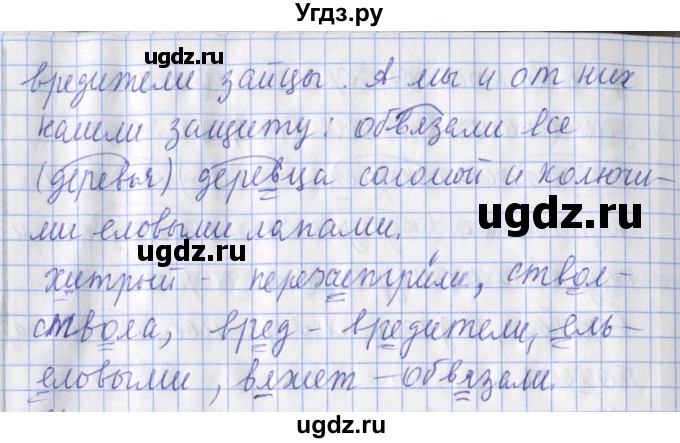 Угдз.ру
ugdz.ru ugdz.ru
вредители зайцы. А мы и от них
нашли защиту: обвязали все
(деревья) деревца соломой и колючи-
ugdz.ru
ugdz.ru
ми еловыми лапами.
хитрый - перехитрили, ствол-
ствола, вред - вредители, ель-
еловыми, вяжет - обвязали.
ugdz.ru
ugdz.ru
Угдз.ру